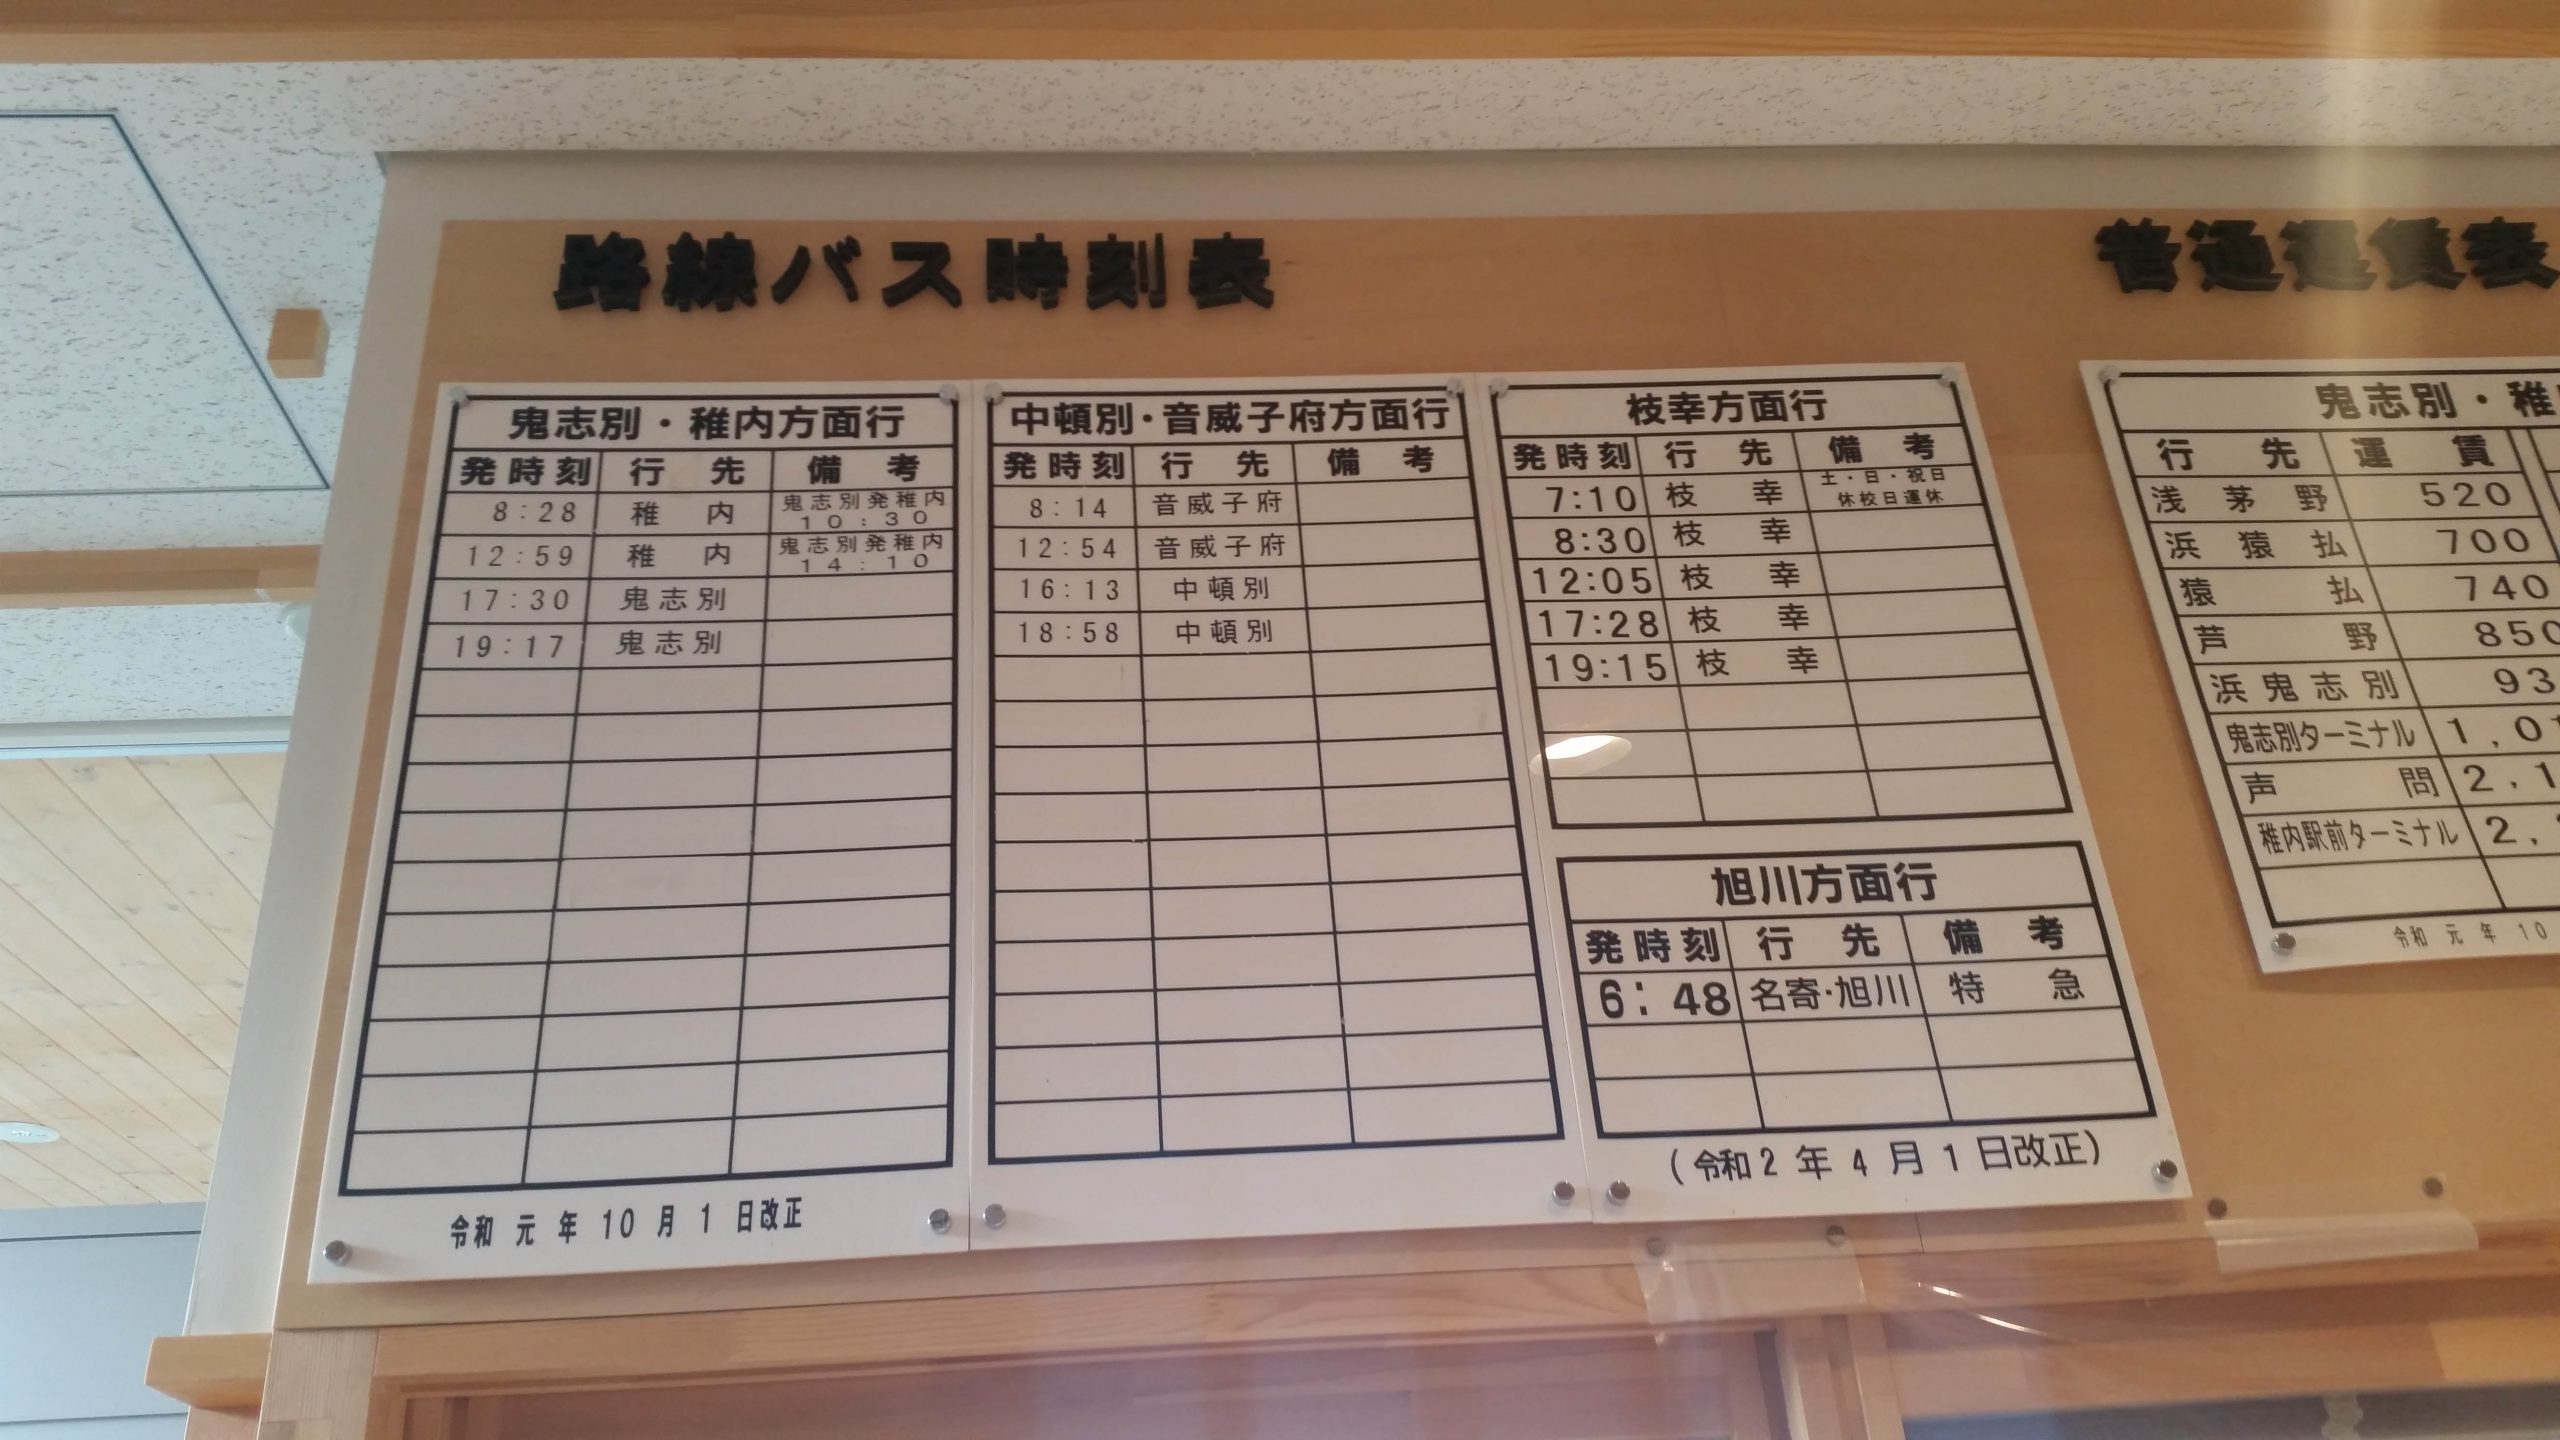 路線バス時刻表
鬼志別・稚内方面行
発時刻 行先 備考
8:28 稚内 鬼志別発稚内 10:30
12:59 稚内 鬼志別発稚内 14:10
17:30 鬼志別
19:17 鬼志別
令和元年10月1日改正
中頓別・音威子府方面行
発時刻 行先 備考
8:14 音威子府
12:54 音威子府
16:13 中頓別
18:58 中頓別
枝幸方面行
発時刻 行先 備考
7:10 枝幸 土・日・祝日 休校日運休
8:30 枝幸
12:05 枝幸
17:28 枝幸
19:15 枝幸
旭川方面行
発時刻 行先 備考
6:48 名寄・旭川 特急
(令和2年4月1日改正)
普通運賃表
鬼志別・稚
行先 運賃
浅茅野 520
浜猿払 700
猿払 740
芦野 850
浜鬼志別 93
鬼志別ターミナル 1,0
声問 2,1
稚内駅前ターミナル 2,
令和元年10